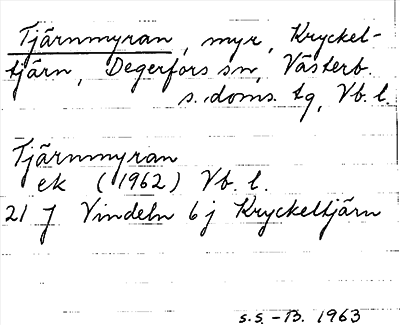 Tjärnmyran, myr, Kryckel-
tjärn, Degerfors sn, Västerb.
s. doms. tg, Vb. l.
Tjärnmyran
ek (1962) Vb. l.
21 J Vindeln 6 j Kryckeltjärn
s.s. - B. 1963